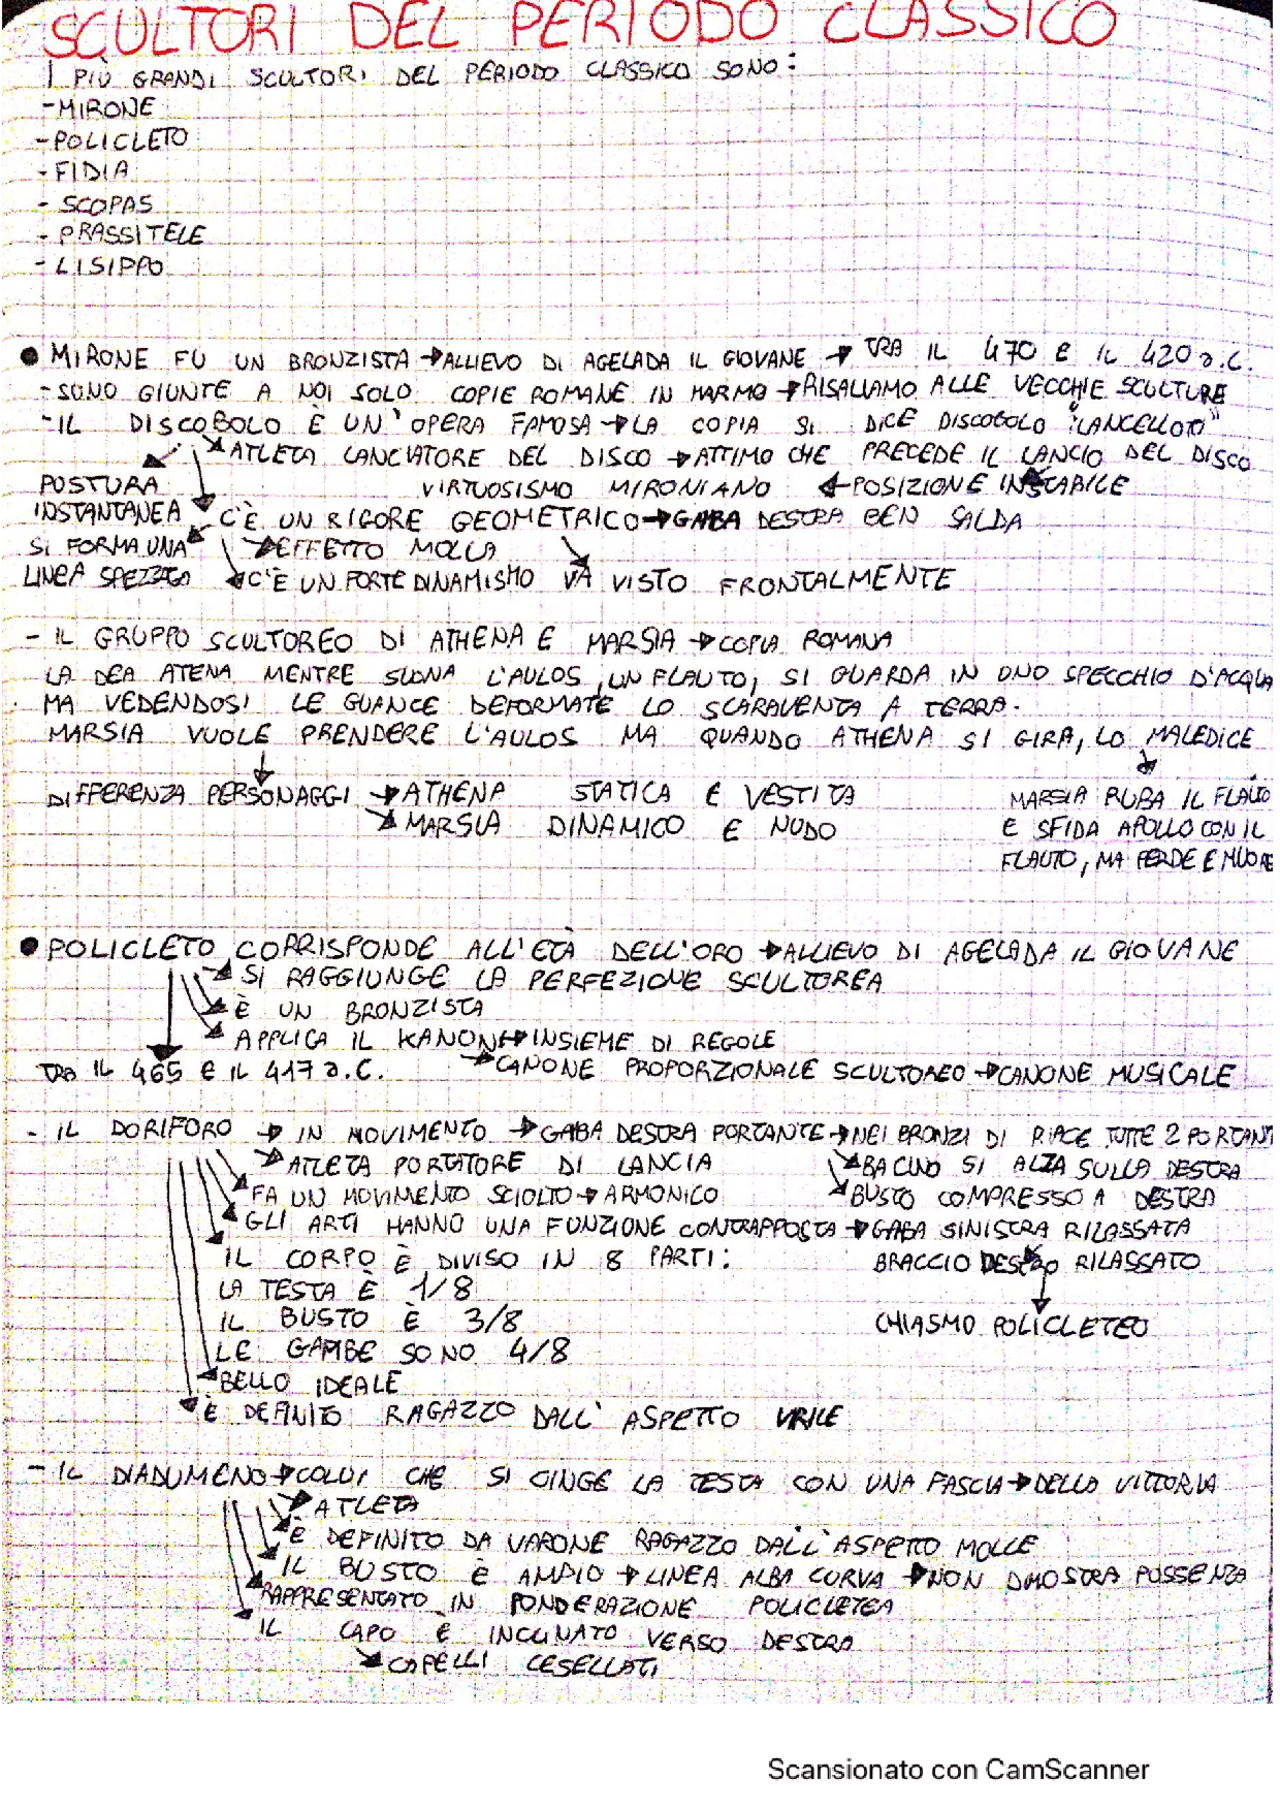 SCULTORI DEL PERIODO CLASSICO
I PIÙ GRANDI SCULTORI DEL PERIODO CLASSICO SONO:
-MIRONE
-POLICLETO
-FIDIA
- SCOPAS
- PRASSITELE
- LISIPPO
● MIRONE FU UN BRONZISTA → ALLIEVO DI AGELADA IL GIOVANE → TRA IL 470 E IL 420 a.C.
- SONO GIUNTE A NOI SOLO COPIE ROMANE IN MARMO → RISALIAMO ALLE VECCHIE SCULTURE
- IL DISCOBOLO È UN'OPERA FAMOSA → LA COPIA SI DICE DISCOBOLO "LANCELLOTI"
ATLETA LANCIATORE DEL DISCO → ATTIMO CHE PRECEDE IL LANCIO DEL DISCO
POSTURA VIRTUOSISMO MIRONIANO ← POSIZIONE INSTABILE
INSTANTANEA C'È UN RIGORE GEOMETRICO → GABA DESTRA BEN SALDA
SI FORMA UNA EFFETTO MOLLA
LINEA SPEZZATA C'È UN FORTE DINAMISMO VA VISTO FRONTALMENTE
- IL GRUPPO SCULTOREO DI ATHENA E MARSIA → COPIA ROMANA
LA DEA ATENA MENTRE SUONA L'AULOS, UN FLAUTO, SI GUARDA IN UNO SPECCHIO D'ACQUA
MA VEDENDOSI LE GUANCE DEFORMATE LO SCARAVENTA A TERRA.
MARSIA VUOLE PRENDERE L'AULOS MA QUANDO ATHENA SI GIRA, LO MALEDICE
DIFFERENZA PERSONAGGI → ATHENA STATICA E VESTITA MARSIA RUBA IL FLAUTO
MARSIA DINAMICO E NUDO E SFIDA APOLLO CON IL
FLAUTO, MA PERDE E MUORE
● POLICLETO CORRISPONDE ALL'ETÀ DELL'ORO → ALLIEVO DI AGELADA IL GIOVANE
SI RAGGIUNGE LA PERFEZIONE SCULTOREA
È UN BRONZISTA
APPLICA IL KANON → INSIEME DI REGOLE
TRA IL 465 E IL 417 a.C. CANONE PROPORZIONALE SCULTOREO → CANONE MUSICALE
- IL DORIFORO → IN MOVIMENTO → GABA DESTRA PORTANTE → NEI BRONZI DI RIACE TUTTE 2 PORTANTI
ATLETA PORTATORE DI LANCIA BACINO SI ALZA SULLA DESTRA
FA UN MOVIMENTO SCIOLTO → ARMONICO BUSTO COMPRESSO A DESTRA
GLI ARTI HANNO UNA FUNZIONE CONTRAPPOSTA → GABA SINISTRA RILASSATA
IL CORPO È DIVISO IN 8 PARTI: BRACCIO DESTRO RILASSATO
LA TESTA È 1/8
IL BUSTO È 3/8 CHIASMO POLICLETEO
LE GAMBE SONO 4/8
BELLO IDEALE
È DEFINITO RAGAZZO DALL'ASPETTO VIRILE
- IL DIADUMENO → COLUI CHE SI CINGE LA TESTA CON UNA FASCIA → DELLA VITTORIA
ATLETA
È DEFINITO DA VARONE RAGAZZO DALL'ASPETTO MOLLE
IL BUSTO È AMPIO → LINEA ALBA CURVA → NON DIMOSTRA POSSENZA
RAPPRESENTATO IN PONDERAZIONE POLICLETEA
IL CAPO È INCLINATO VERSO DESTRA
CAPELLI CESELLATI
Scansionato con CamScanner